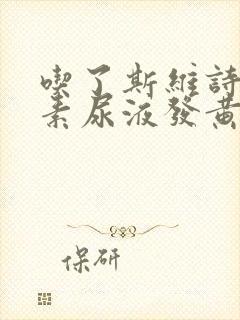 喫了斯維詩
素尿液發黃
保研